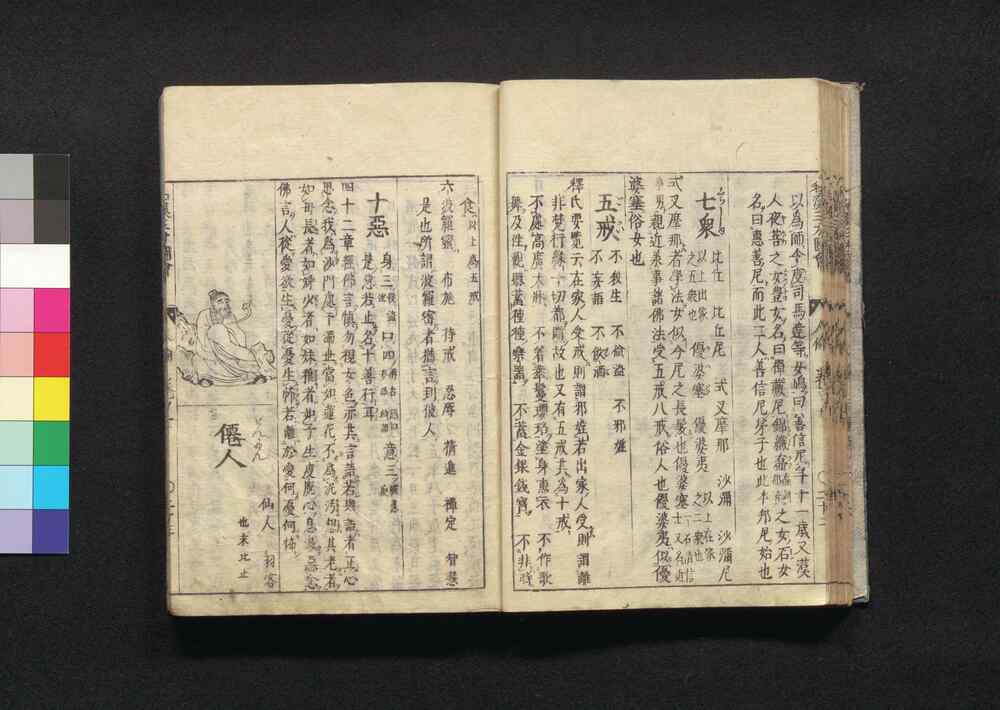 以為師令度司馬達等女嶋曰善信尼年十一歳又漢
人夜菩之女豊女名曰禅蔵尼錦織壺之女石女
名曰惠善尼而此二人善信尼弟子也此本邦尼始也
七衆
比丘 比丘尼 式叉摩那 沙彌 沙彌尼
以上出家之五衆也 優婆塞 優婆夷 以上在家之二衆也
式叉摩那者學法女似今尼之長髪也優婆塞 士又名近
事男親近承事諸佛法受五戒八戒俗人也優婆夷似優
婆塞俗女也
五戒
不殺生 不偸盗 不邪婬
不妄語 不飲酒
釋氏要覧云在家人受戒則謂邪婬若出家人受則謂離
非梵行緣一切都斷故也又有五戒共為十戒
不處高廣大牀 不着華鬘瓔珞塗身熏衣 不作歌
舞及往觀聽 種種樂器 不蓄金銀錢寶 不非時
食 以上為五戒
六波羅蜜 布施 持戒 忍辱 精進 禅定 智慧
是也所謂波羅蜜者猶言到彼人
十惡
身三 殺盗婬 口四 意三
是惡哉止名十善行耳
四十二章經佛言慎勿視女色亦共言語若與語者正心
思念我為沙門處于濁世當如蓮花不為泥汚想其老者
如母長者如姉少者如妹稚者如子生度脱心息滅惡念
佛言人從愛欲生憂從憂生怖若離於愛何憂何怖
僊人
せんにん
仙人 羽客
也末比止